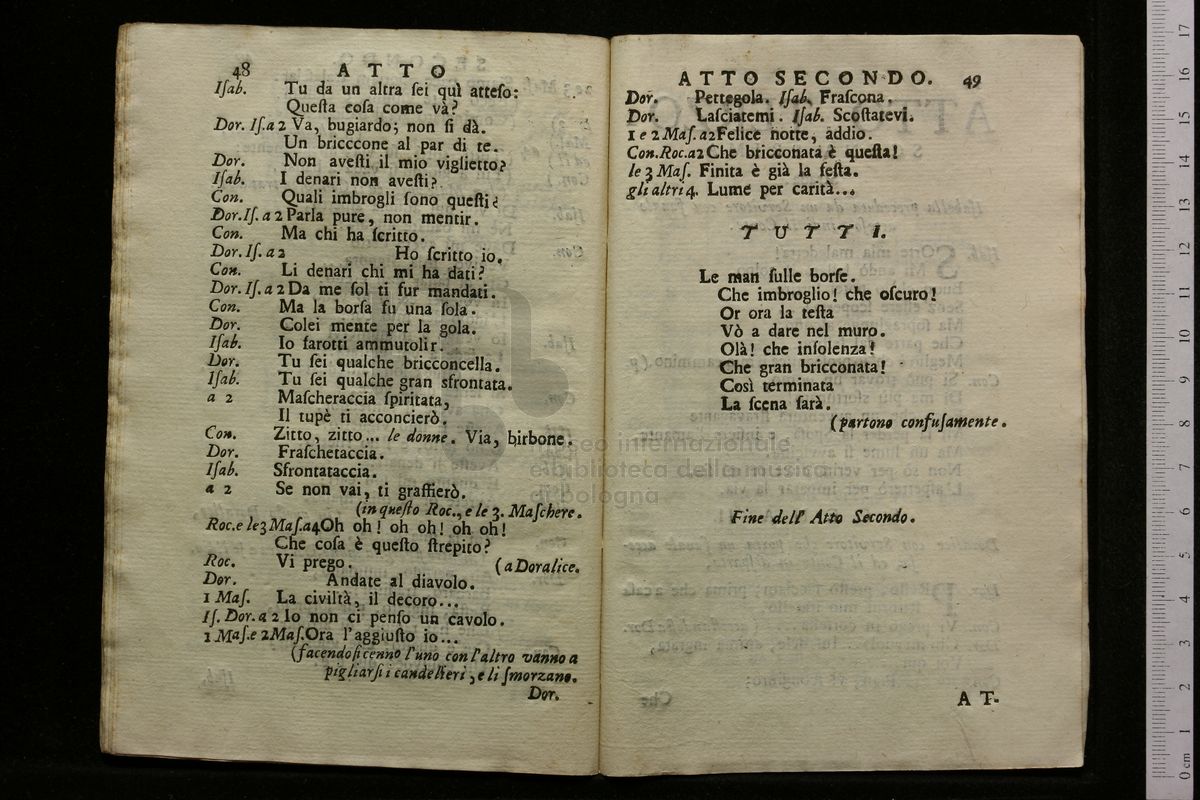 48 ATTO
Iſab. Tu da un altra ſei quì atteſo:
Queſta coſa come và?
Dor. Iſ. a 2 Va, bugiardo; non ſi dà.
Un bricccone al par di te.
Dor. Non aveſti il mio viglietto?
Iſab. I denari non aveſti?
Con. Quali imbrogli ſono queſti?
Dor. Iſ. a 2 Parla pure, non mentir.
Con. Ma chi ha ſcritto.
Dor. Iſ. a 2 Ho ſcritto io.
Con. Li denari chi mi ha dati?
Dor. Iſ. a 2 Da me ſol ti fur mandati.
Con. Ma la borſa fu una ſola.
Dor. Colei mente per la gola.
Iſab. Io farotti ammutolir.
Dor. Tu ſei qualche bricconcella.
Iſab. Tu ſei qualche gran sfrontata.
a 2 Maſcheraccia ſpiritata,
Il tupè ti acconcierò.
Con. Zitto, zitto... le donne. Via, birbone.
Dor. Fraſchetaccia.
Iſab. Sfrontataccia.
a 2 Se non vai, ti graffierò.
(in queſto Roc., e le 3. Maſchere.
Roc. e le 3 Maſ. a 4 Oh oh! oh oh! oh oh!
Che coſa è queſto ſtrepito?
Roc. Vi prego. (a Doralice.
Dor. Andate al diavolo.
1 Maſ. La civiltà, il decoro...
Iſ. Dor. a 2 Io non ci penſo un cavolo.
1 Maſ. e 2 Maſ. Ora l'aggiuſto io...
(facendoſi cenno l'uno con l'altro vanno a
pigliarſi i candelieri, e li ſmorzano.
Dor.
ATTO SECONDO. 49
Dor. Pettegola. Iſab. Fraſcona.
Dor. Laſciatemi. Iſab. Scoſtatevi.
1 e 2 Maſ. a 2 Felice notte, addio.
Con. Roc. a 2 Che bricconata è queſta!
le 3 Maſ. Finita è già la feſta.
gli altri 4. Lume per carità...
TUTTI.
Le man ſulle borſe.
Che imbroglio! che oſcuro!
Or ora la teſta
Vò a dare nel muro.
Olà! che inſolenza!
Che gran bricconata!
Così terminata
La ſcena ſarà.
(partono confuſamente.
Fine dell' Atto Secondo.
AT-
museo internazionale
e biblioteca della musica
di bologna
0 cm 1 2 3 4 5 6 7 8 9 10 11 12 13 14 15 16 17